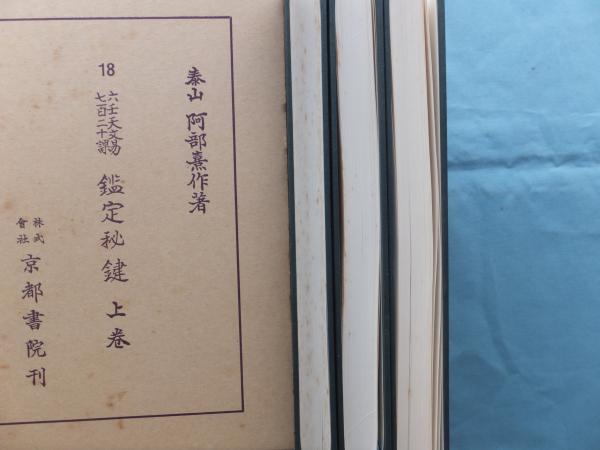 泰山 阿部熹作著
18
六壬天文易
七百二十課
鑑定秘鍵 上巻
株式
會社
京都書院刊